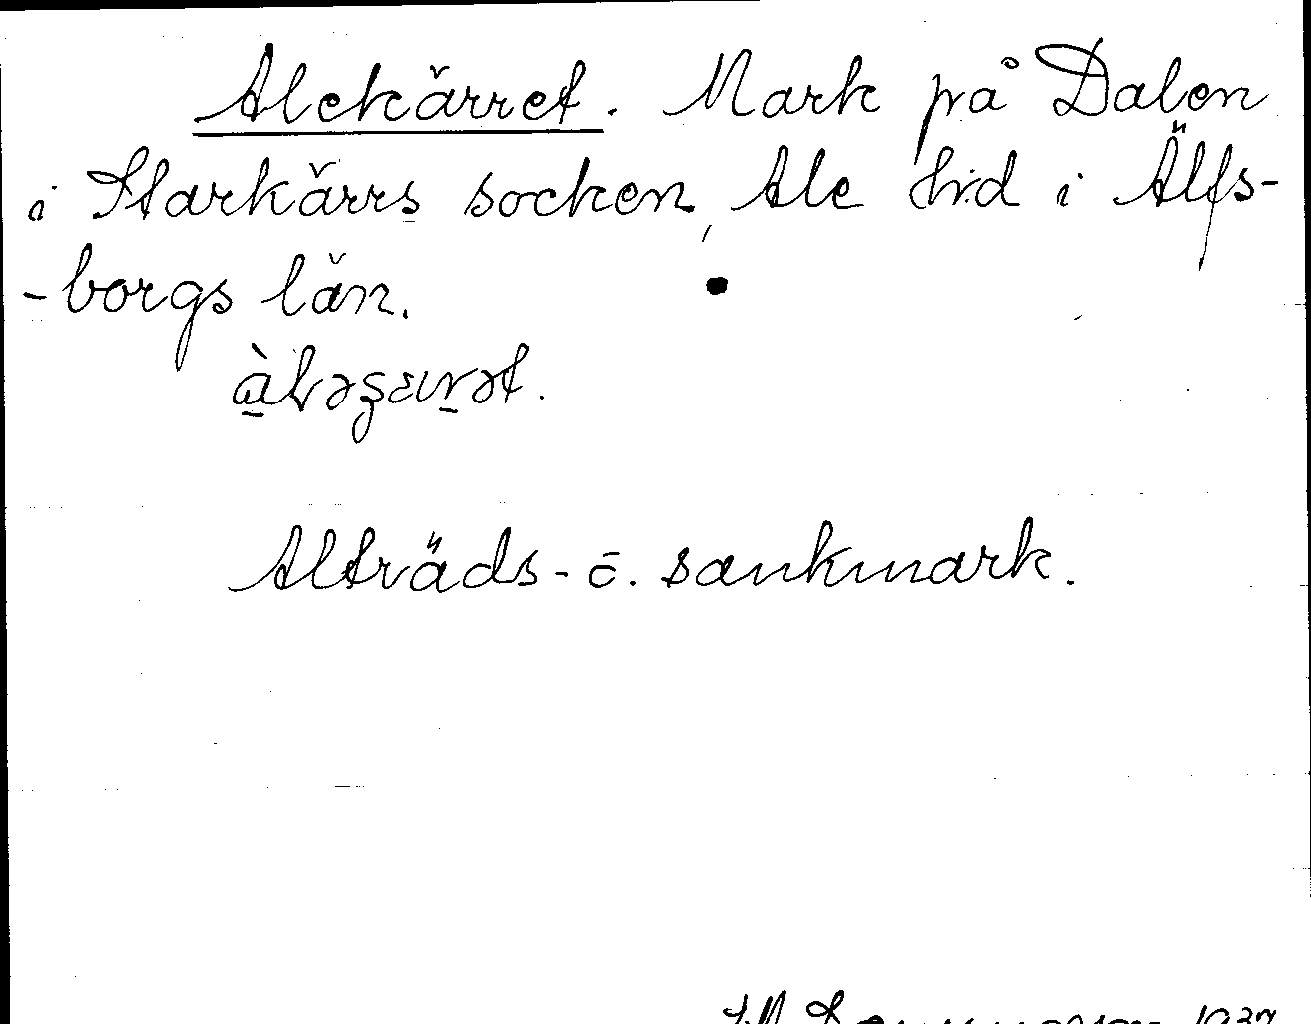 Alekärret. Mark på Dalen
i Starkärrs socken, Ale hrd i Älfs-
-borgs län.
Alträds- o. sankmark.
1937